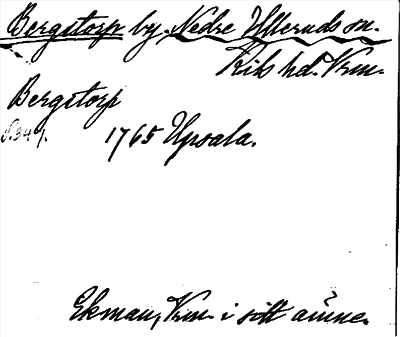 Bergstorp by. Nedre Ulleruds sn.
Kils hd. Vrm.
Bergstorp
S. 347. 1765 Upsala.
Ekman, Vrm. i sitt ämne.